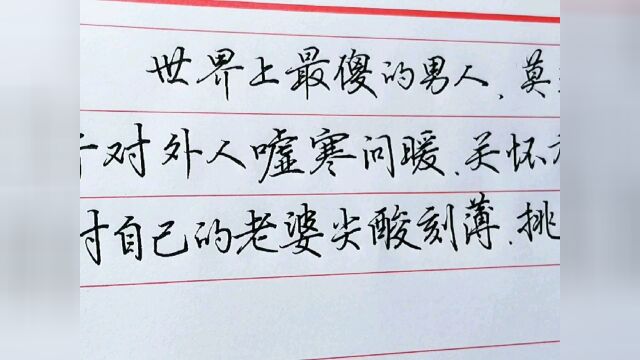 世界上最傻的男人、莫
对外人嘘寒问暖、关怀
对自己的老婆尖酸刻薄、挑